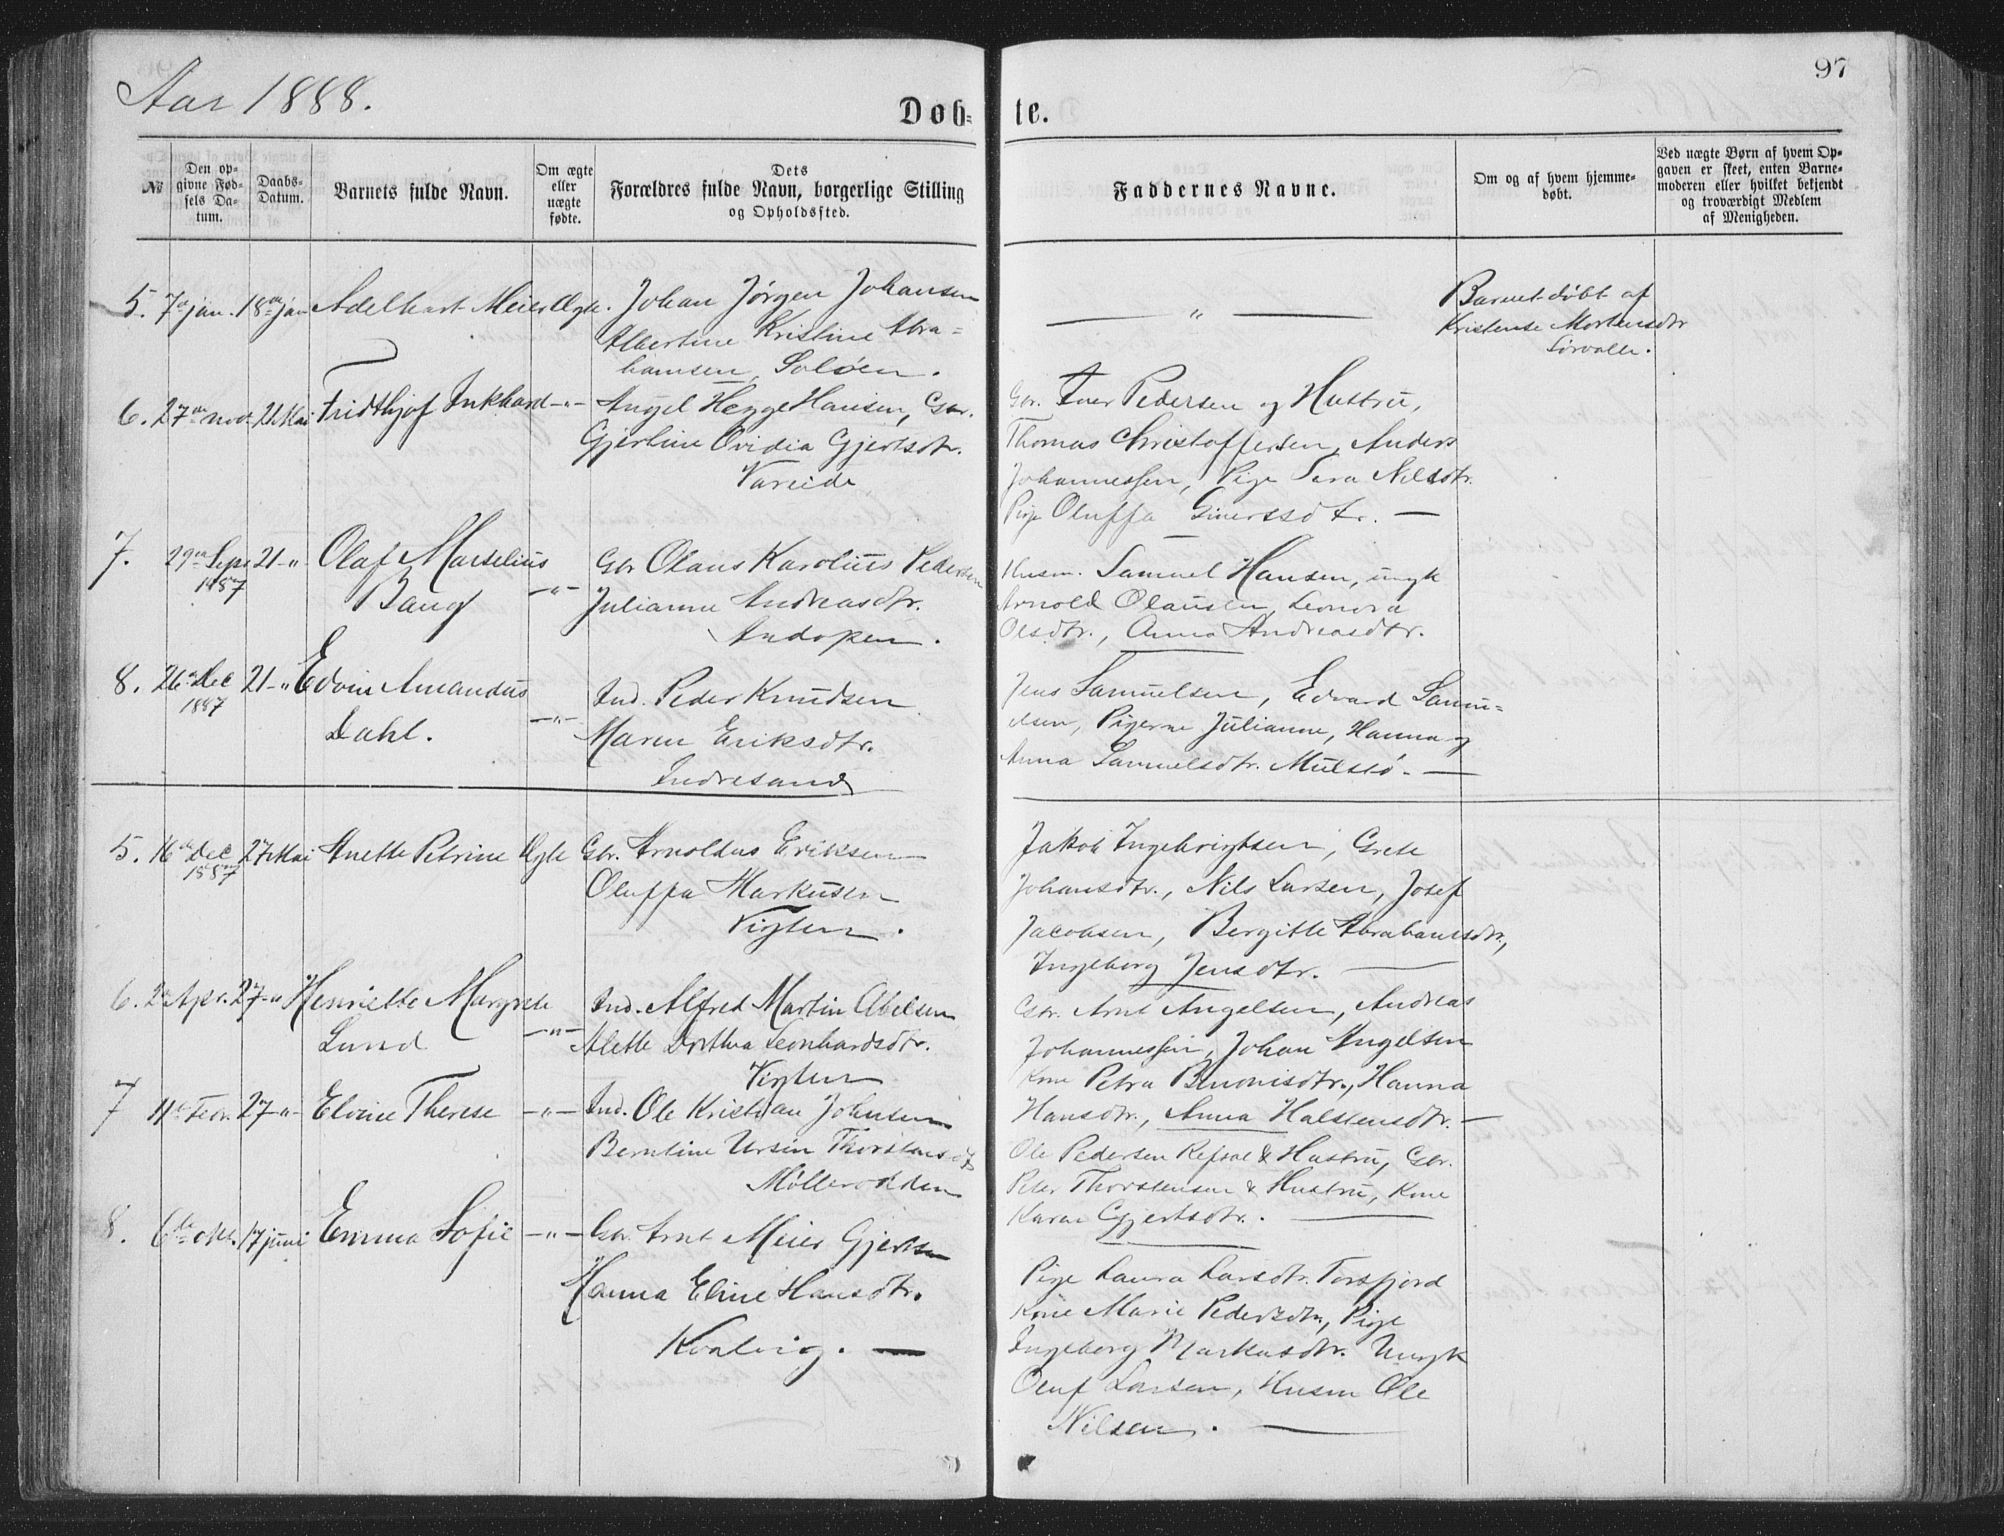 Aar 1888.
Døb-
te.
97
No
Den opgivne Fødsels Datum.
Daabs-Datum.
Barnets fulde Navn.
Om ægte eller uægte fødte.
Dets Forældres fulde Navn, borgerlige Stilling og Opholdssted.
Faddernes Navne.
Om og af hvem hjemmedøbt.
Ved uægte Børn af hvem Opgaven er skeet, enten Barnemoderen eller hvilket bekjendt og troværdigt Medlem af Menigheden.
5. 7de jan. 18de jan Adelhart Meier Ægte. Johan Jørgen Johansen
Albertine Kristine Abra=
hamsen, Soløen.
— " —
Barnet døbt af
Kristense Mortensdtr
Sørvalle.
6. 27de nov. 21 Mai Fridthjof Inkhard -"- Angel Hegge Hansen, Gbr.
Gjertine Ovidia Gjertsdtr.
Vareide
Gbr. Iver Pedersen og Hustru,
Thomas Christoffersen, Anders
Johannessen, Pige Sara Nilsdtr.
Pige Oluffa Einersdtr. —
7. 29de Sept 1887 21-" Olaf Marselius
Bang -"-
Gbr Olaus Karolius Pedersen
Julianne Andreasdtr.
Andopen.
Husm. Samuel Hansen, ungk
Arnold Olausen, Leonora
Olsdtr., Anna Andreasdtr.
8. 26de Dec 1887 21-" Edvin Amandus
Dahl. -"-
Ind. Peder Knudsen
Maren Eriksdtr.
Indresand
Jens Samuelsen, Edvard Samu=
elsen, Pigerne Julianne, Hanna og
Anna Samuelsdtr. Mulstø. —
5. 16de Dec 1887 27 Mai Anette Petrine Ægte Gbr. Arnoldus Eriksen
Oluffa Markusen
Vigten.
Jakob Ingebrigtsen, Grete
Johansdtr., Nils Larsen, Josef
Jacobsen, Bergitte Abrahamsdtr.,
Ingeborg Jensdtr. —
6. 2 Apr. 27-" Henriette Margrete
Lund -"-
Ind. Alfred Martin Abelsen
Alette Dorthea Leonhardsdtr.
Vigten
Gbr. Arnt Angelsen, Andreas
Johannessen, Johan Angelsen
Kone Petra Benonisdtr., Hanna
Hansdtr., Anna Halstensdtr. —
7 11te Febr. 27-"- Elvine Therese -"- Ind. Ole Kristian Johnsen
Berntine Ursin Thorstensdtr
Møllerodden
Ole Pedersen Refsvl & Hustru, Gbr.
Peter Thorstensen & Hustru, Kone
Karen Gjertsdtr. —
8. 6te okt. 17 juni Emma Sofie -"- Gbr. Arnt Meier Gjertsen
Hanna Eline Hansdtr.
Kvalvig. —
Pige Laura Larsdtr. Torsfjord
Kone Marie Pedersdtr, Pige
Ingeborg Markusdtr. Ungk
Oluf Larsen, Husm Ole
Nilsen. —